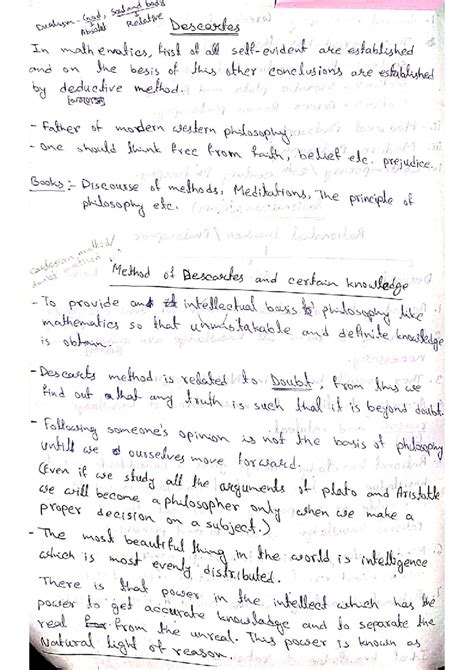 Dualism - God, Soul and body
Absolute Relative
Descartes
In mathematics, first of all self-evident are established
and on the besis of this other conclusions are established
by deductive method.
- Father of mordern western philosophy
- One should think free from faith, belief etc. prejudice.
Books :- Discourse of methods, Meditations, The principle of
philosophy etc.
cartesian method/
doubt
Method of Descartes and certain knowledge
- To provide an intellectual basis to philosophy like
mathematics so that unmistakable and definite knowledge
is obtain.
- Descarts method is redated to Doubt. From this we
find out that any truth is such that it is beyond doubt.
- Following someone's opinion is not the basis of philosophy
untill we ourselves move forward.
(Even if we study all the arguments of plato and Aristotle
we will become a philosopher only when we make a
proper decision on a subject.)
- The most beautiful thing in the world is intelligence
which is most evenly distributed.
There is that power in the intellect which has the
power to get accurate knowledge and to separate the
real from the unreal. This power is known as
Natural light of reason.